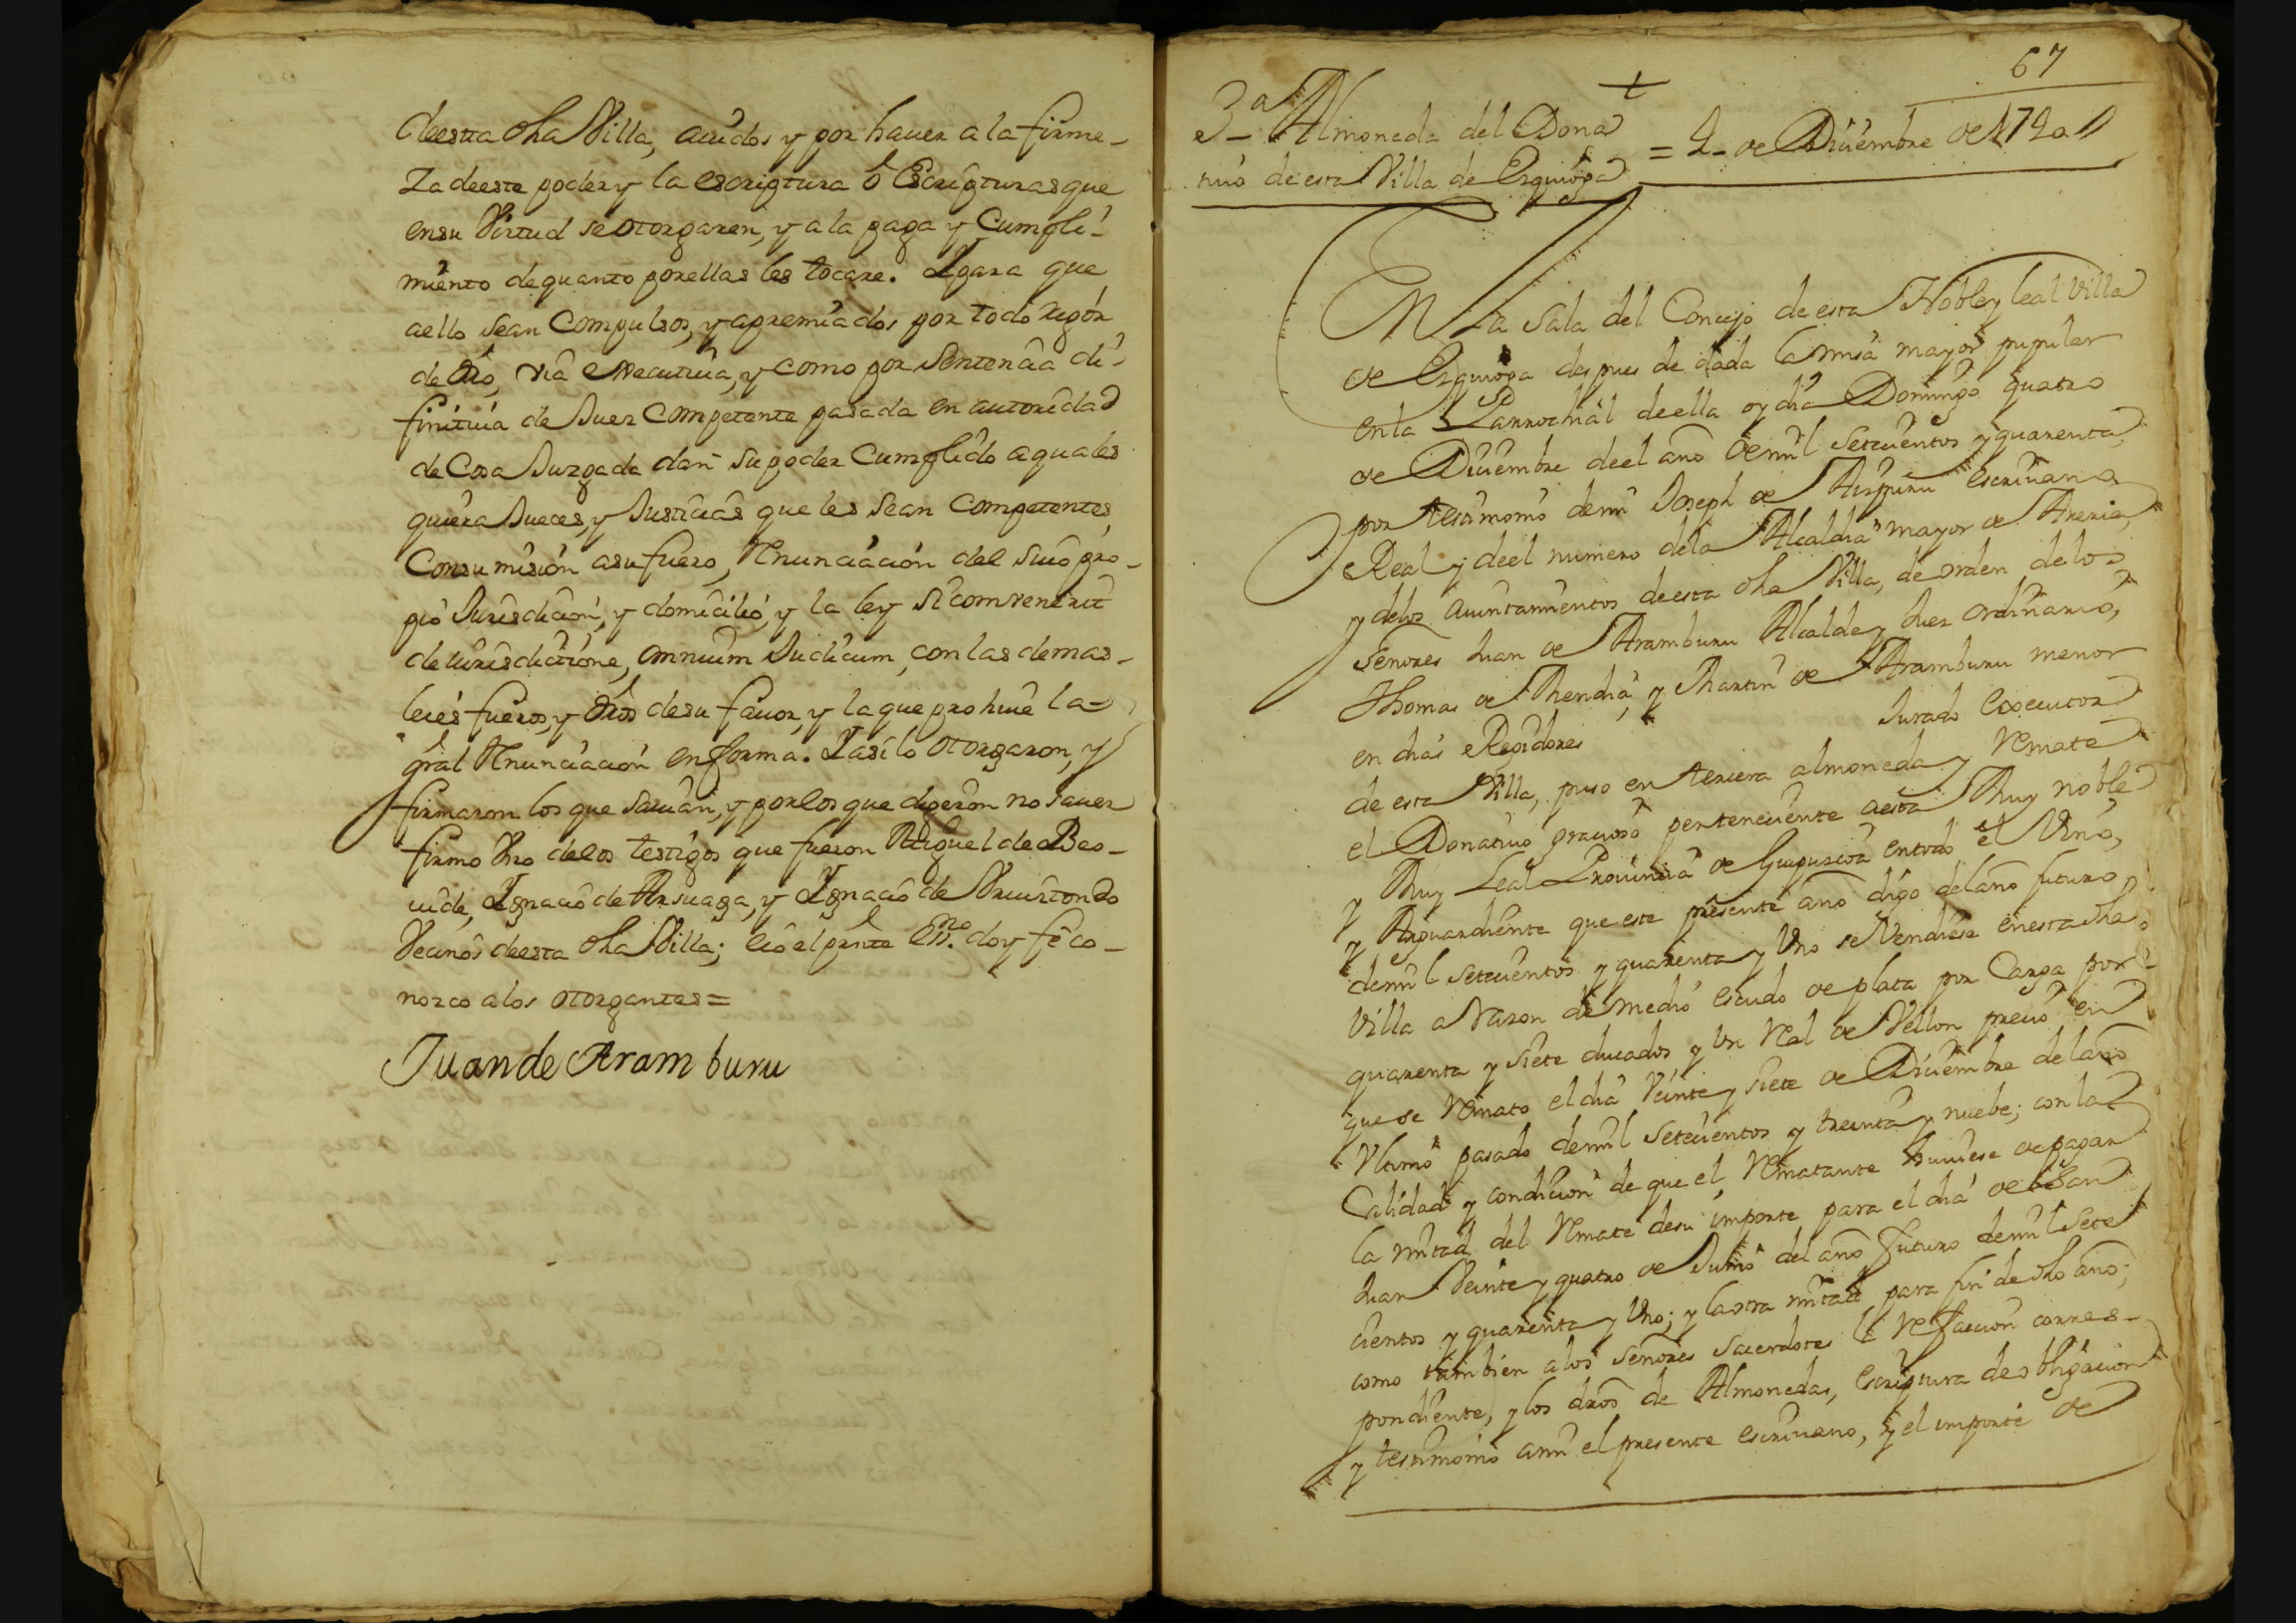 deesta dha Villa, avidos y por haver a la firme-
za deeste poder y la escriptura ô Escripturas que
en su Virtud se otorgaren, y a la paga y Cumpli-
miento de quanto por ellas les tocare. Y para que
a ello sean Compulsos, y apremiados por todo rigor
de dro, via executiva, y como por Sentencia di-
finitiva de Juez Competente pasada en autoridad
de Cosa Juzgada dan su poder Cumplido a quales
quiera Jueces, y Justicias que les sean Competentes,
Con sumision a su fuero, Renunciacion del suio pro-
pio Jurisdicion, y domicilio, y la ley Si comvenerit
de iurisdictione, omnium Judicum, con las demas-
leies fueros, y dros de su favor, y la que prohive la
gral Renunciacion en forma. Y asi lo otorgaron, y
firmaron los que savian, y por los que digeron no saver
firmo Uno de los testigos que fueron Miguel de Beo-
vide, Ygnacio de Arsuaga, y Ygnacio de Urquiztondo
Vecinos deesta dha Villa; eio el pnte Essno. doy fê co-
nozco a los otorgantes=
Juan de Aramburu
67
3a Almoneda del Dona
tivo de esta Villa de Ezquioga = 4 de Diciembre de 1740
En la Sala del Concejo de esta Noble y leal Villa
de Ezquioga despues de dada la misa mayor pupular
en la Parrochial de ella oy dia Domingo quatro
de Diciembre de el año de mil Setecientos y quarenta
por testimonio de mi Joseph de Aizpuru escrivano
Real y de el numero de la Alcaldia mayor de Areria,
y de los Aiuntamientos de esta dha Villa, de orden de los
Señores Juan de Aramburu Alcalde y Juez ordinario,
Thomas de Mendia, y Martin de Aramburu menor
en dias Regidores Jurado executor
de esta Villa, puso en tercera almoneda y Remate
el Donativo gracioso perteneciente a esta Muy noble
y Muy Leal Provincia de Guipuzcoa en todo el Vino,
y Aguardiente que este presente año digo del año futuro
de mil Setecientos y quarenta y Uno se Vendiese en esta dha
Villa a razon de medio escudo de plata por Carga por
quarenta y siete ducados y Un Real de Vellon precio en
que se Remato el dia Veinte y siete de Diciembre del año
Ultimo pasado de mil Setecientos y treinta y nuebe; con la
Calidad y condicion de que el Rematante huviese de pagar
la mitad del Remate de su importe para el dia de San
Juan Veinte y quatro de Junio del año futuro de mil Sete
cientos y quarenta y Uno; y la otra mitad para fin de dho año;
como tambien a los Señores Sacerdotes la Refaccion corres-
pondiente, y los dros de Almonedas, escriptura de obligacion
y testimonio a mi el presente escrivano, y el importe de